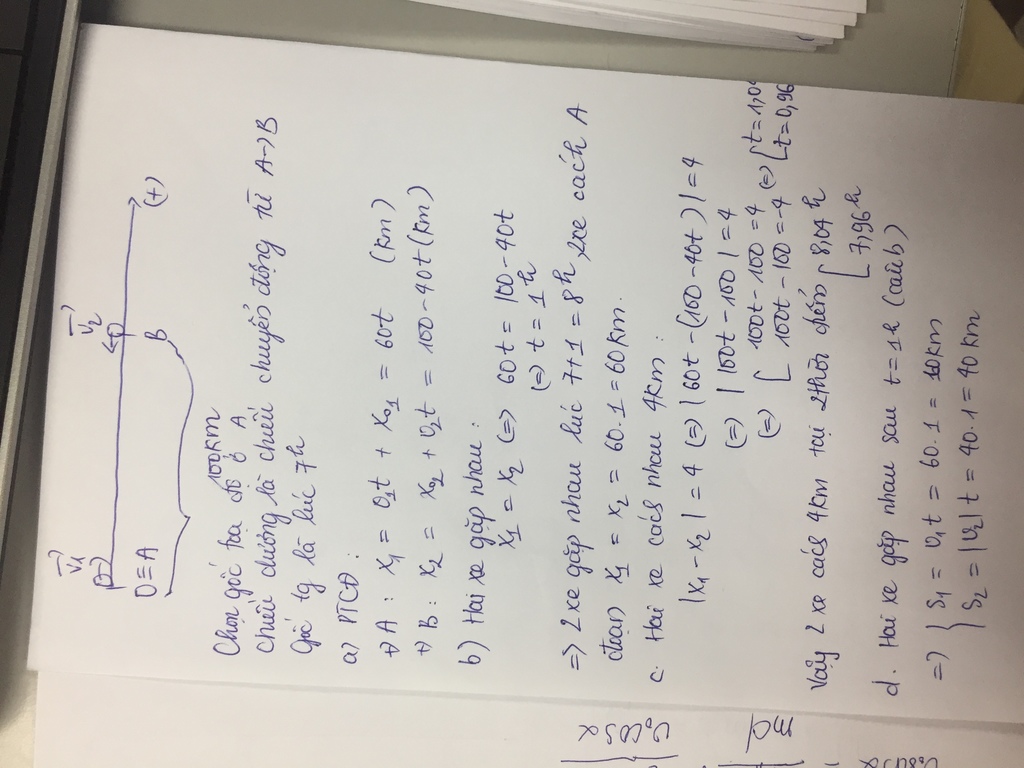 v₁ v₂
O≡A B (+)
100km
Chọn gốc tọa độ ở A
Chiều dương là chiều chuyển động từ A→B
gốc tg là lúc 7h
a) PTCĐ :
+) A : x₁ = v₁t + x₀₁ = 60t (km)
+) B : x₂ = x₀₂ + v₂t = 100 - 40t (km)
b) Hai xe gặp nhau :
x₁ = x₂ (=) 60t = 100 - 40t
(=) t = 1h
=) 2 xe gặp nhau lúc 7+1 = 8h, 2 xe cách A
đoạn x₁ = x₂ = 60.1 = 60km.
c. Hai xe cách nhau 4km :
|x₁ - x₂| = 4 (=) |60t - (100 - 40t)| = 4
(=) |100t - 100| = 4
(=) [ 100t - 100 = 4 (=) [ t = 1,04
100t - 100 = -4 t = 0,96
Vậy 2 xe cách 4km tại 2 thời điểm [ 8,04h
7,96h
d. Hai xe gặp nhau sau t = 1h (câu b)
=) { S₁ = v₁t = 60.1 = 60km
S₂ = |v₂|t = 40.1 = 40km
v₀cosα